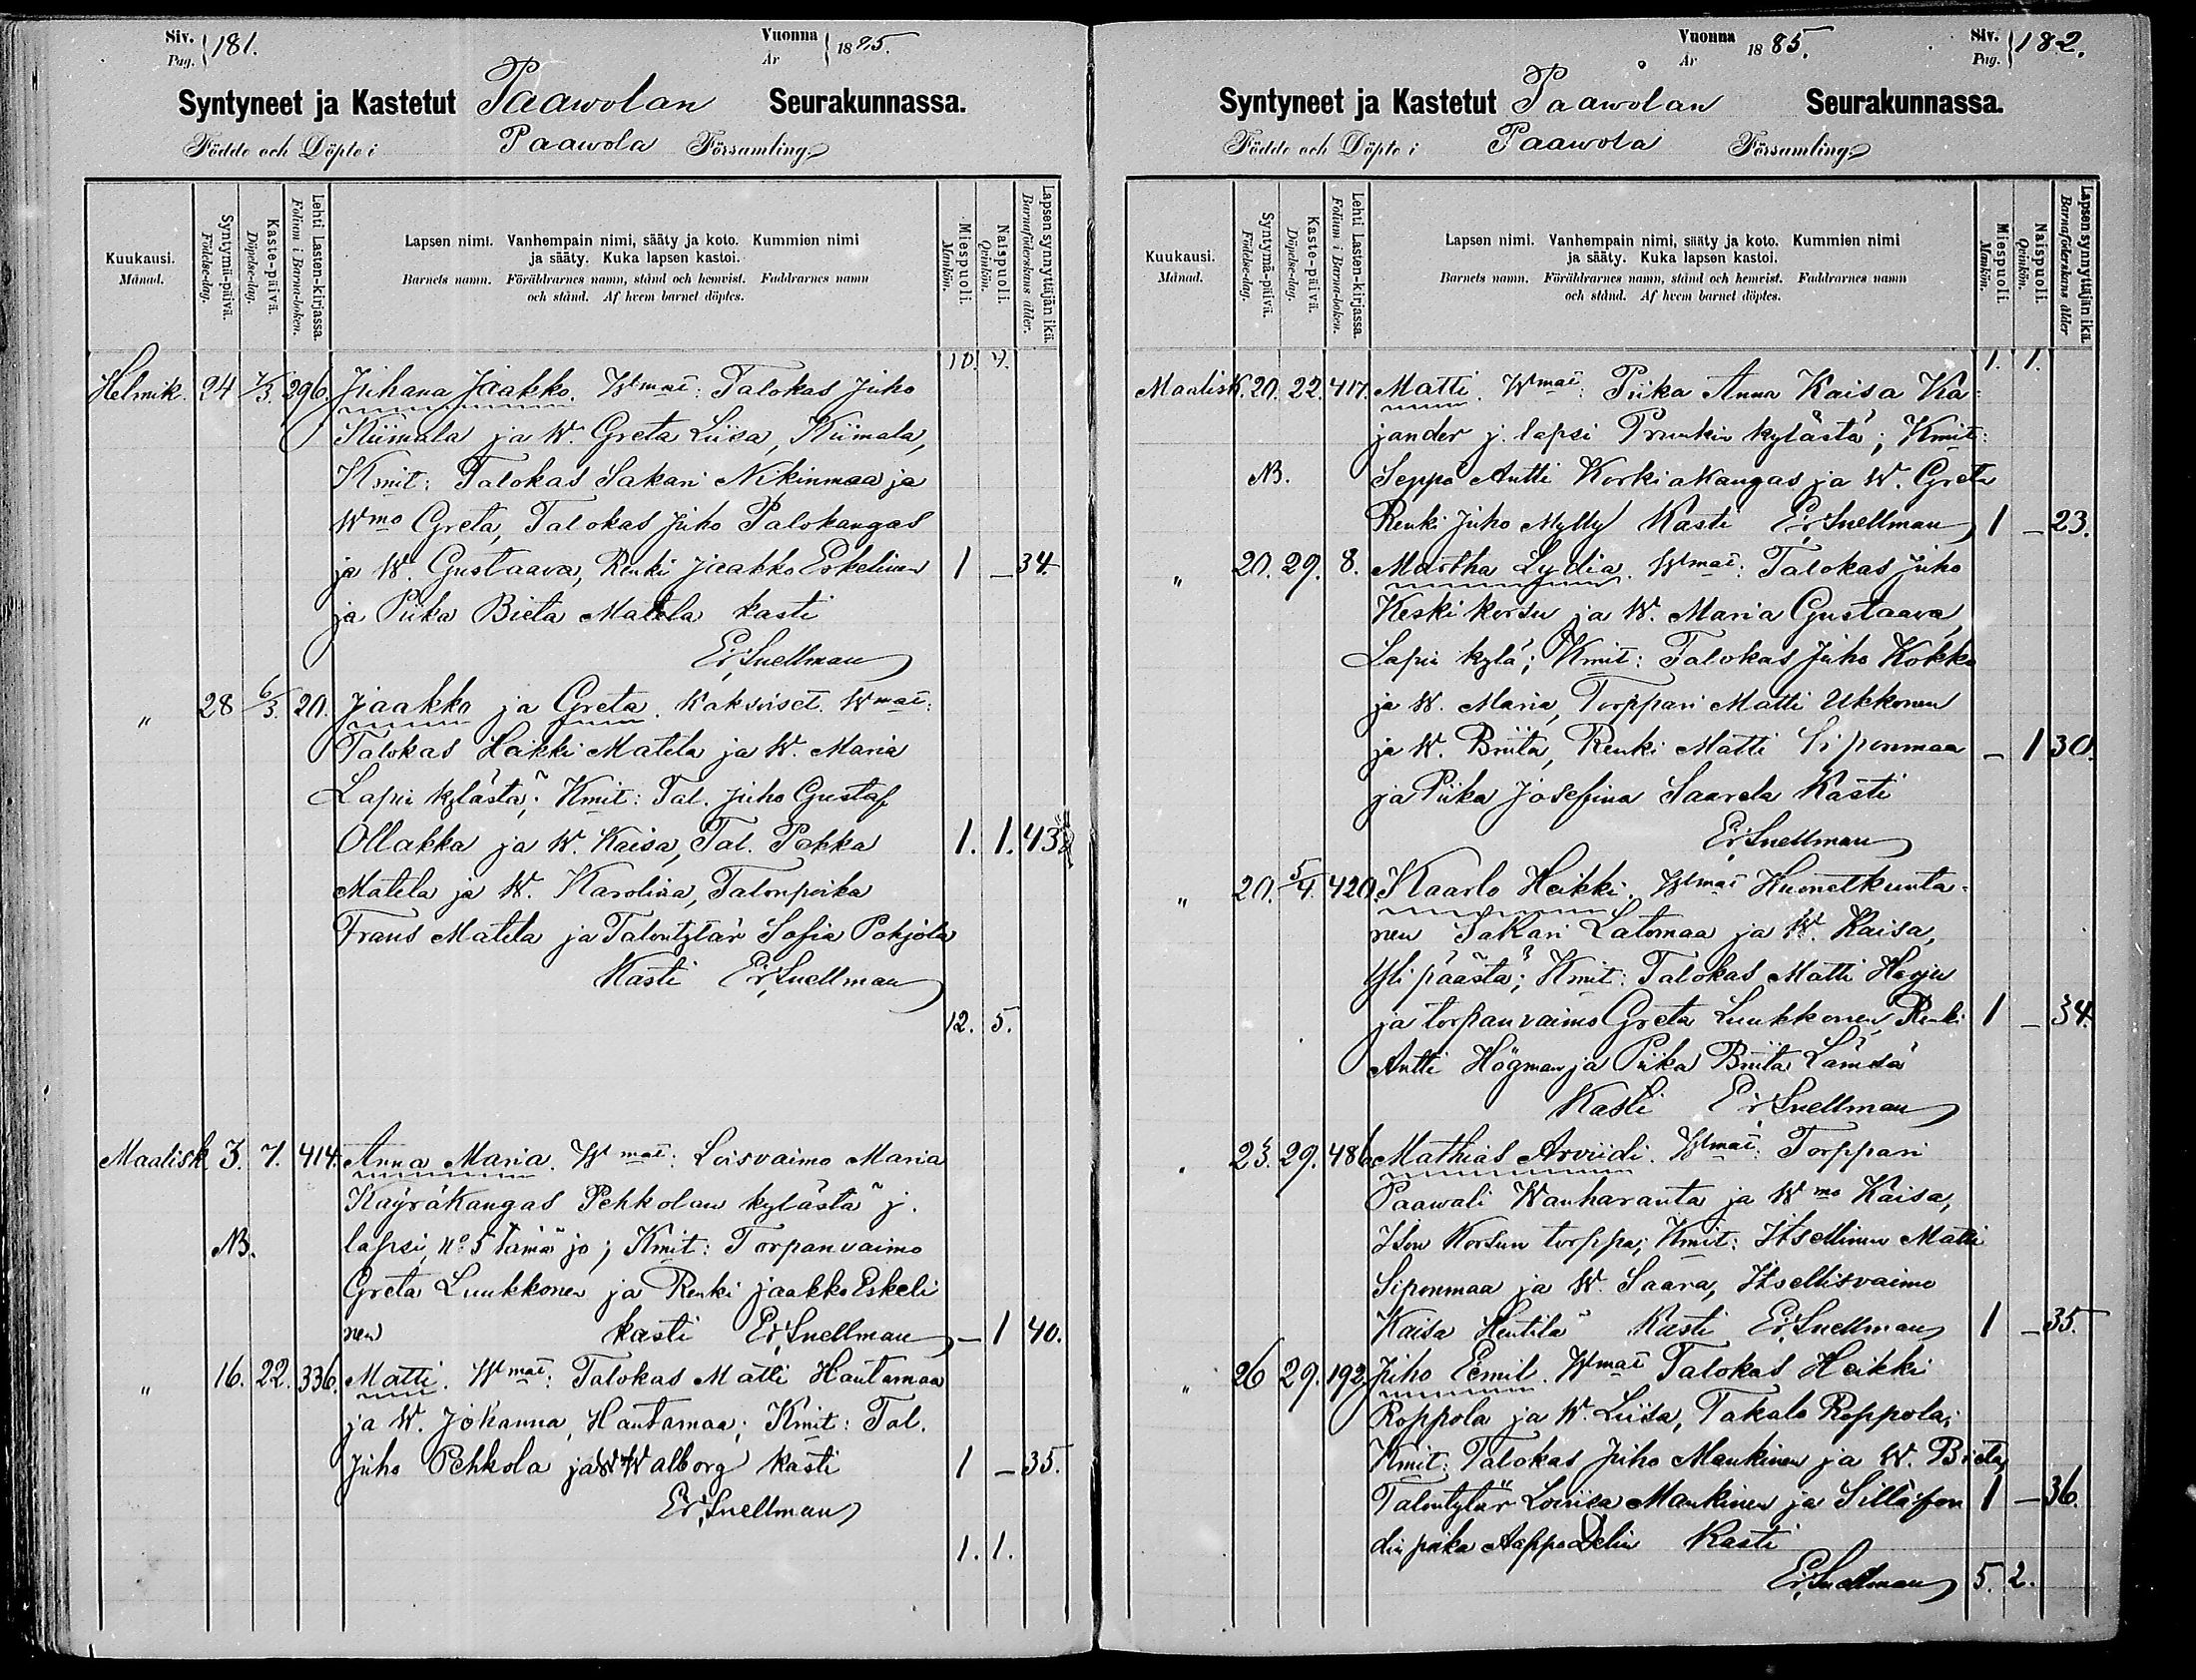 Siv. Pag. 181.
Vuonna År 1885.
Syntyneet ja Kastetut Paawolan Seurakunnassa.
Födde och Döpte i Paawola Församling
Kuukausi. Månad.
Syntymä-päivä. Födelse-dag.
Kaste-päivä. Döpelse-dag.
Lehti Lasten-kirjassa. Folium i Barna-boken.
Lapsen nimi. Vanhempain nimi, sääty ja koto. Kummien nimi
ja sääty. Kuka lapsen kastoi.
Barnets namn. Föräldrarnes namn, stånd och hemvist. Faddrarnes namn
och stånd. Af hvem barnet döptes.
Miespuoli. Mankön.
Naispuoli. Qvinkön.
Lapsen synnyttäjän ikä. Barnaföderskans ålder.
Helmik. 24 1/3. 296. Juhana Jaakko. Wmat: Talokas Juho
Kiimala ja W. Greta Liisa, Kiimala,
Kmit: Talokas Sakari Nikinmaa ja
Wmo Greta, Talokas Juho Palokangas
ja W. Gustaava, Renki Jaakko Eskelinen 1 — 34.
ja Piika Bieta Matela kasti
Er. Snellman
" 28 6/3. 20. Jaakko ja Greta. Kaksoiset. Wmat:
Talokas Heikki Matela ja W. Maria
Lapin kylästä; Kmit: Tal. Juho Gustaf
Ollakka ja W. Kaisa, Tal. Pekka 1. 1. 43
Matela ja W. Karolina, Talonpoika
Frans Matela ja Talontytär Sofia Pohjola
Kasti Er. Snellman
12. 5.
Maalisk. 3. 7. 414. Anna Maria. Wmat: Loisvaimo Maria
Käyräkangas Pehkolan kylästä j.
NB. lapsi, No 5 tämä jo; Kmit: Torpanvaimo
Greta Luukkonen ja Renki Jaakko Eskeli
nen kasti Er. Snellman — 1 40.
" 16. 22. 336. Matti. Wmat: Talokas Matti Hautamaa
ja W. Johanna, Hautamaa; Kmit: Tal.
Juho Pehkola ja W Walborg kasti 1 — 35.
Er. Snellman
1. 1.
Vuonna År 1885.
Siv. Pag. 182.
Syntyneet ja Kastetut Paawolan Seurakunnassa.
Födde och Döpte i Paawola Församling
Kuukausi. Månad.
Syntymä-päivä. Födelse-dag.
Kaste-päivä. Döpelse-dag.
Lehti Lasten-kirjassa. Folium i Barna-boken.
Lapsen nimi. Vanhempain nimi, sääty ja koto. Kummien nimi
ja sääty. Kuka lapsen kastoi.
Barnets namn. Föräldrarnes namn, stånd och hemvist. Faddrarnes namn
och stånd. Af hvem barnet döptes.
Miespuoli. Mankön.
Naispuoli. Qvinkön.
Lapsen synnyttäjän ikä. Barnaföderskans ålder
1. 1.
Maalisk. 20. 22. 417. Matti. Wmat: Piika Anna Kaisa Ka-
jander j. lapsi Prunkin kylästä; Kmit:
NB. Seppä Antti Korkiakangas ja W. Greta
Renki Juho Mylly Kasti Er. Snellman 1 — 23.
" 20. 29. 8. Martha Lydia. Wmat: Talokas Juho
Keskikorsu ja W. Maria Gustaava,
Lapin kylä; Kmit: Talokas Juho Kokko
ja W. Maria, Torppari Matti Ukkonen
ja W. Briita, Renki Matti Siponmaa — 1 30.
ja Piika Josefina Saarela Kasti
Er. Snellman
" 20. 5/4. 420. Kaarlo Heikki. Wmat Huonetkunta-
nen Sakari Latomaa ja W. Kaisa,
Ylipäästä; Kmit: Talokas Matti Harju
ja torpanvaimo Greta Luukkonen, Renki 1 — 34.
Antti Högman ja Piika Briita Lämsä
Kasti Er. Snellman
" 23. 29. 486. Mathias Arviidi. Wmat: Torppari
Paawali Wanharanta ja Wmo Kaisa,
Ison Korsun torppa; Kmit: Itsellinen Matti
Siponmaa ja W. Saara, Itsellisvaimo
Kaisa Hentilä Kasti Er. Snellman 1 — 35.
" 26 29. 192. Juho Eemil. Wmat Talokas Heikki
Roppola ja W. Liisa, Takalo Roppola;
Kmit: Talokas Juho Mankinen ja W. Bieta,
Talontytär Loviisa Mankinen ja Sillafon 1 — 36.
din poika Aappo Delin Kasti
Er. Snellman 5. 2.